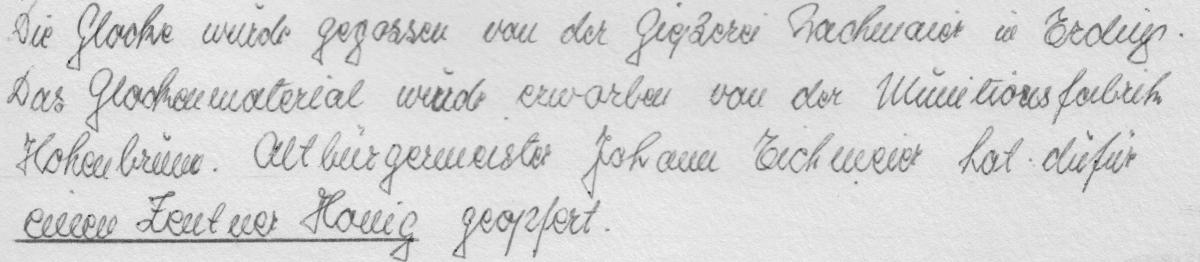 Die Glocke wurde gegossen von der Gießerei Bachmaier in Erding.
Das Glockenmaterial wurde erworben von der Munitionsfabrik
Hohenbrunn. Altbürgermeister Johann Eichmeier hat dafür
einen Zentner Honig geopfert.